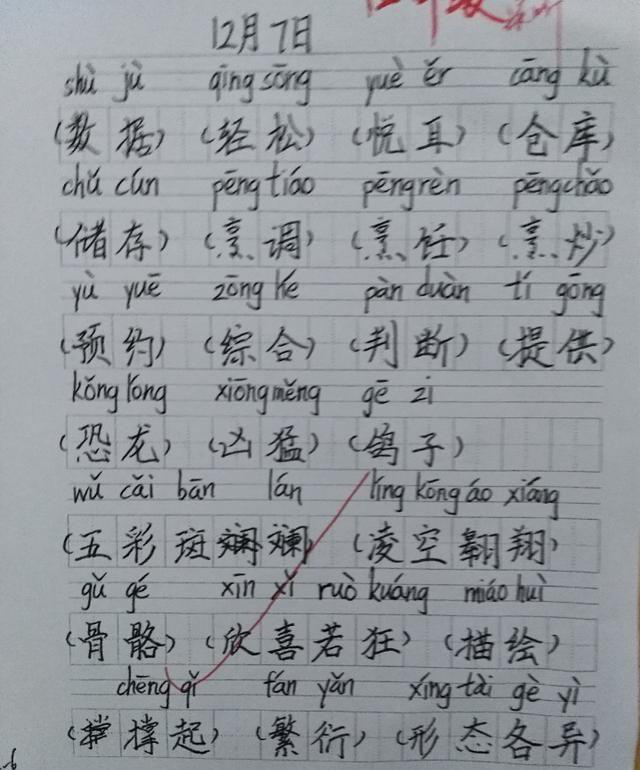 12月7日
shù jù qīng sōng yuè ěr cāng kù
(数据) (轻松) (悦耳) (仓库)
chǔ cún pēng tiáo pēng rèn pēng chǎo
(储存) (烹调) (烹饪) (烹炒)
yù yuē zōng hé pàn duàn tí gōng
(预约) (综合) (判断) (提供)
kǒng lóng xiōng měng gē zi
(恐龙) (凶猛) (鸽子)
wǔ cǎi bān lán líng kōng áo xiáng
(五彩斑斓斓) (凌空翱翔)
gǔ gé xīn xǐ ruò kuáng miáo huì
(骨骼) (欣喜若狂) (描绘)
chēng qǐ fán yǎn xíng tài gè yì
(撑撑起) (繁衍) (形态各异)